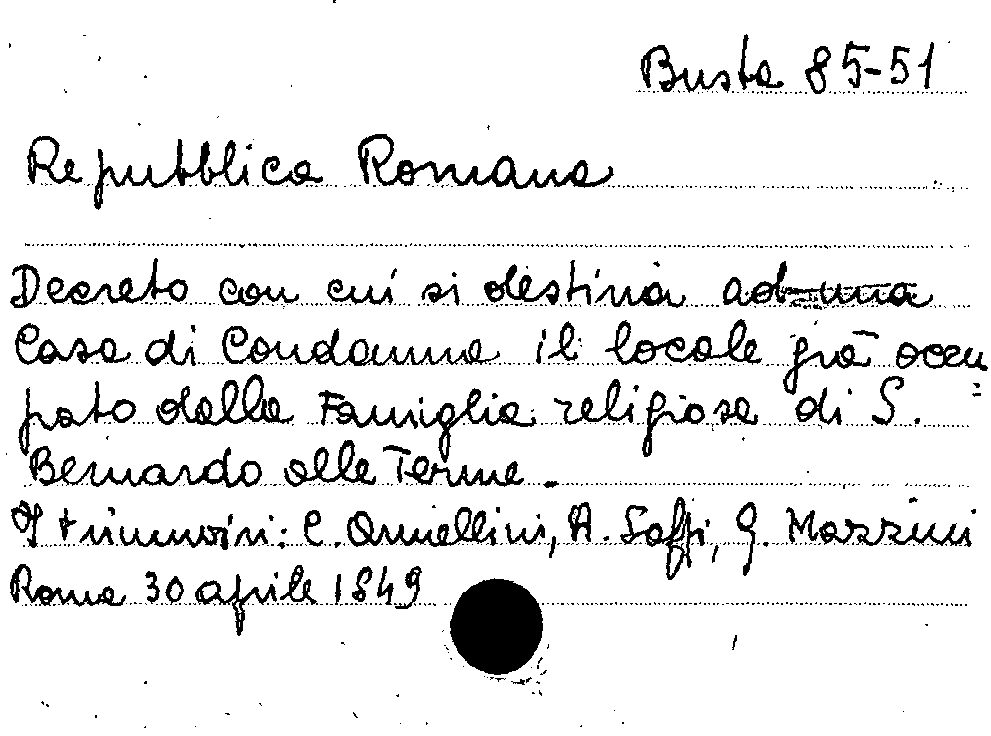 Busta 85-51
Repubblica Romana
Decreto con cui si destina ad una
Casa di Condanna il locale già occu
pato dalla Famiglia religiosa di S.
Bernardo alle Terme.
I triumviri: C. Armellini, A. Saffi, G. Mazzini
Roma 30 aprile 1849